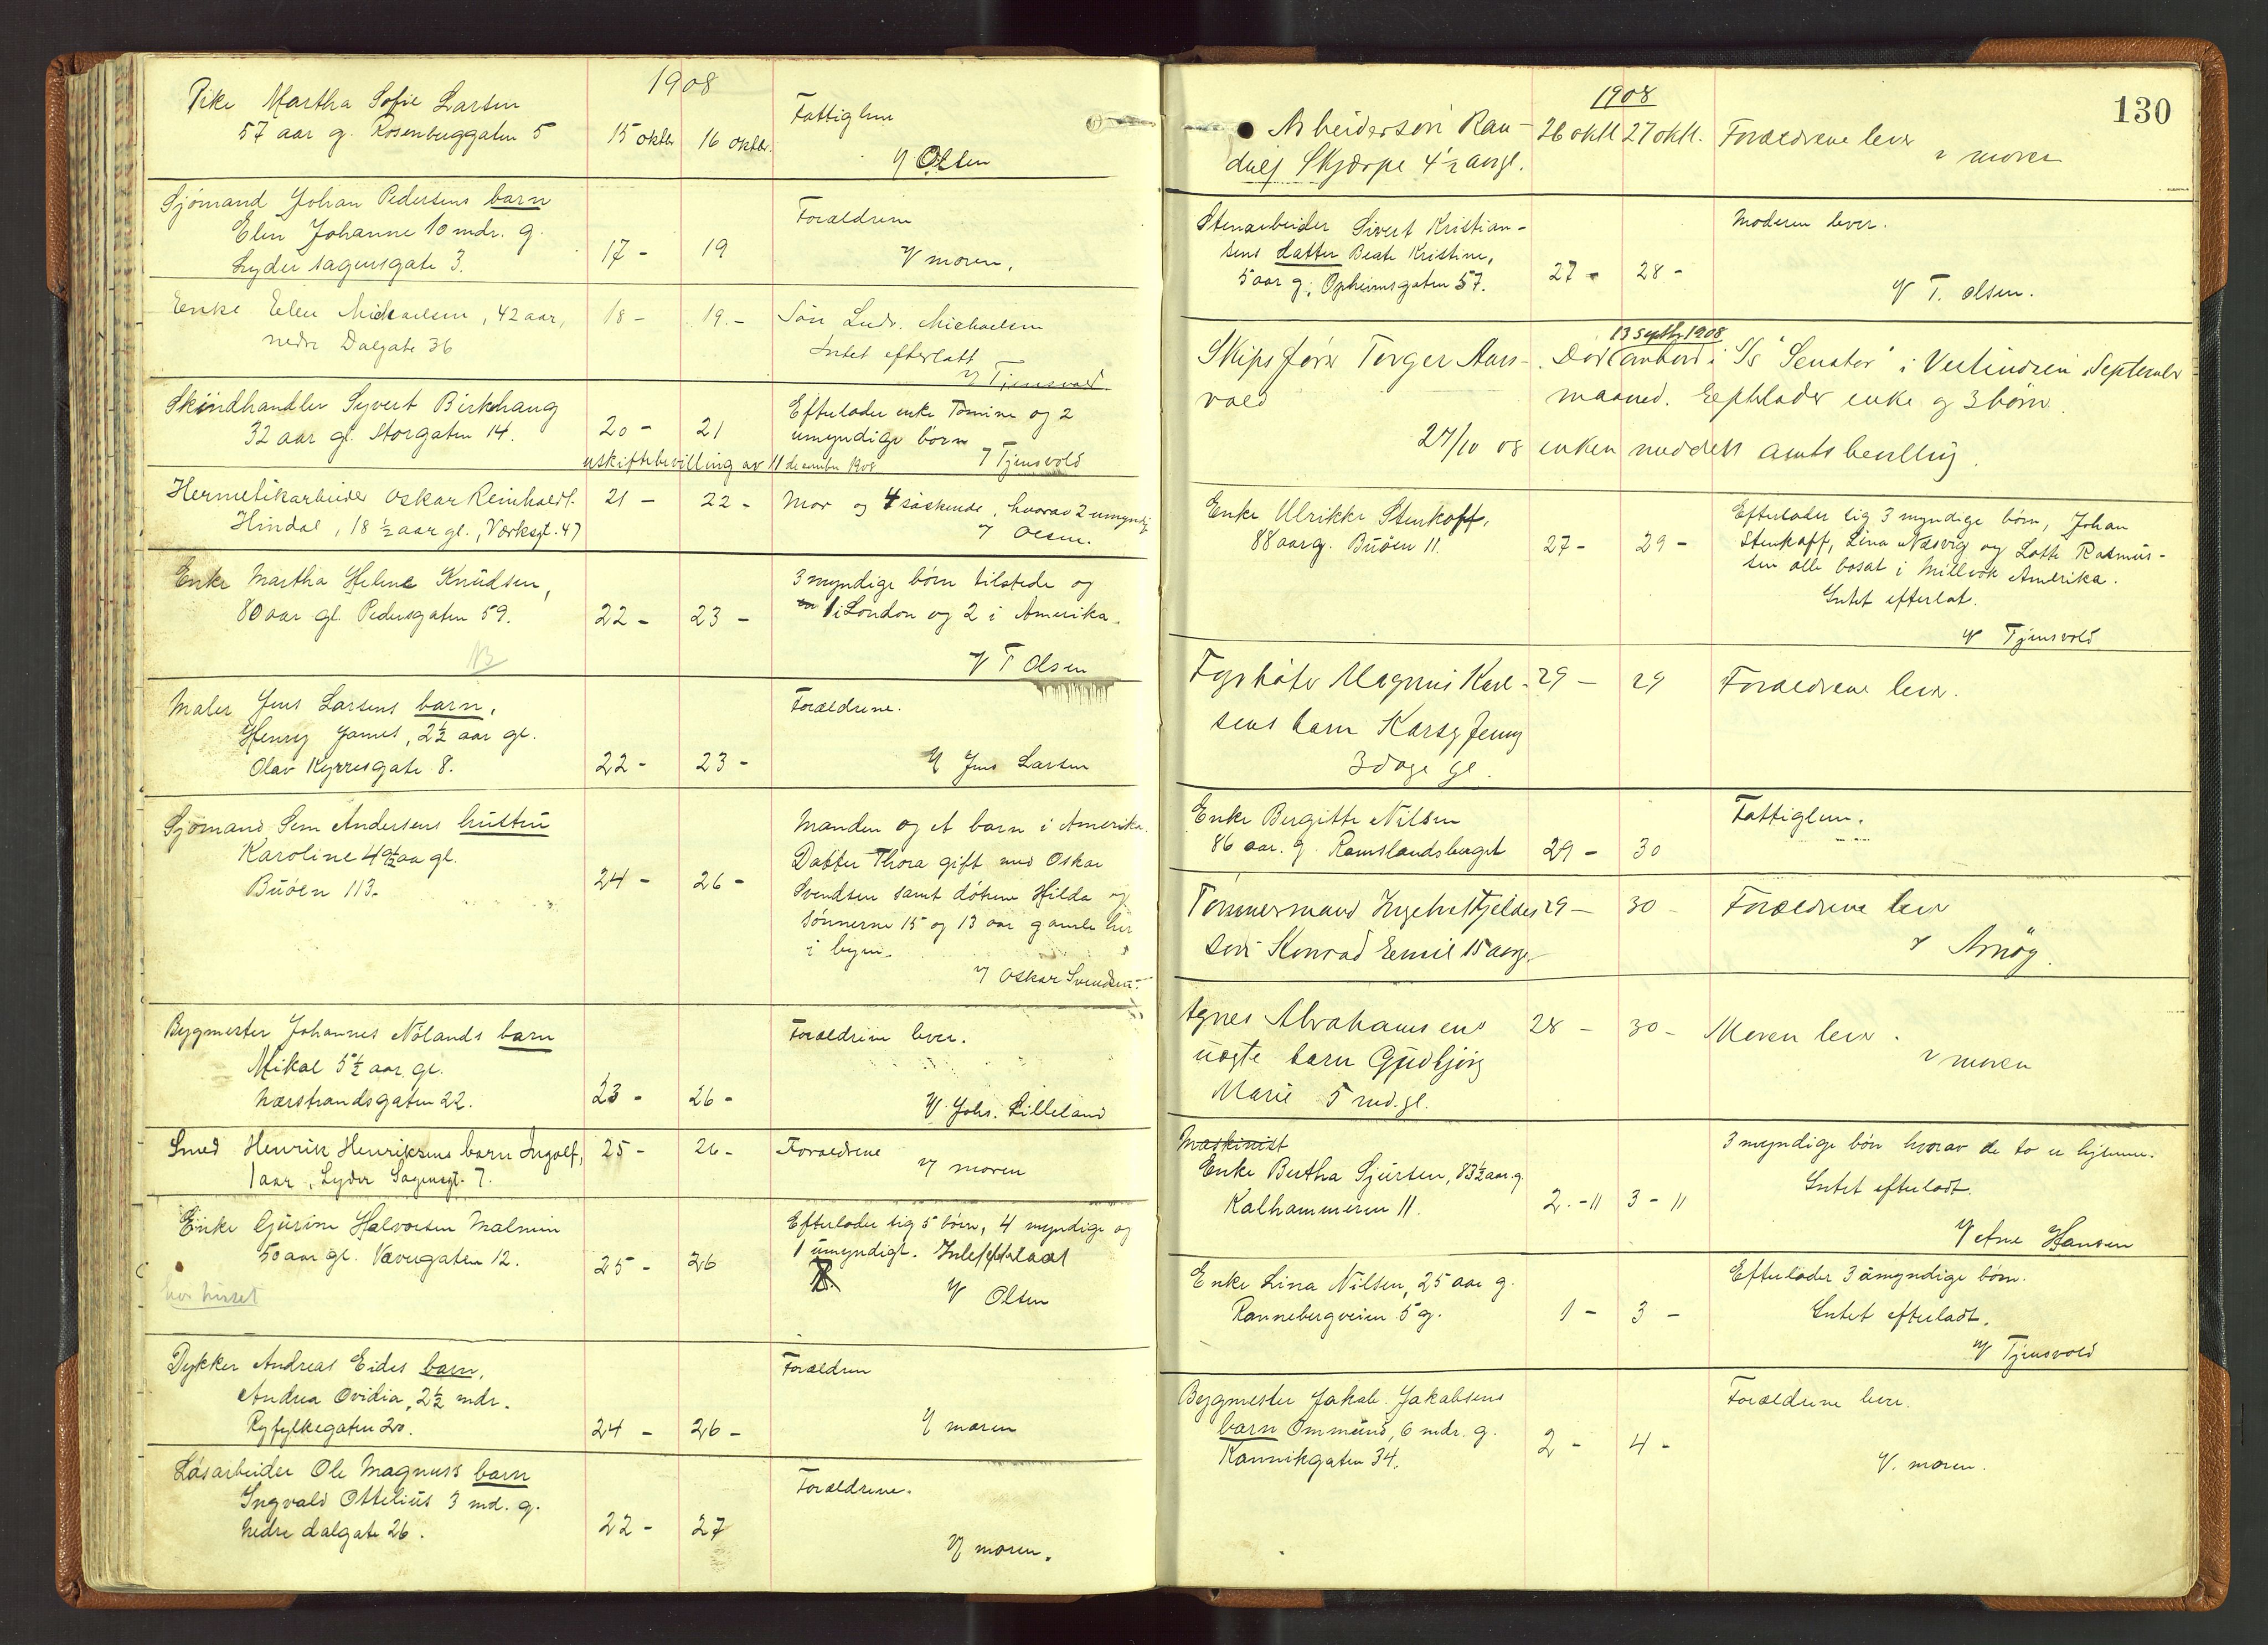 1908
Pike Martha Sofie Larsen
57 aar g. Rosenberggaten 5
15 oktbr 16 oktbr.
Fattiglem
V Olsen
Sjömand Johan Pedersens barn
Elen Johanne 10 mdr. g.
Lyder sagensgate 3.
17 - 19
Forældrene
V moren.
Enke Elen Michaelsen, 42 aar,
nedre Dalgate 36
18 - 19. -
Sön Ludv. Michaelsen
Intet efterlatt
V Tjensvold
Skindhandler Syvert Birkhaug
32 aar gl. Storgaten 14.
20 - 21
Efterlader enke Tomine og 2
umyndige börn
V Tjensvold
uskiftebevilling av 11 december 1908
Hermetikarbeider Oskar Reinholdt
Hindal, 18 ½ aar gl., Værksgt. 47
21 - 22 -
Mor og 4 söskende, hvorav 2 umyndig
V Olsen.
Enke Martha Helene Knudsen,
80 aar gl. Pedersgaten 59.
NB
22 - 23 -
3 myndige börn tilstede og
1 i London og 2 i Amerika.
V T Olsen
Maler Jens Larsens barn,
Henry James, 2½ aar gl.
Olav Kyrresgate 8.
22 - 23 -
Forældrene.
V Jens Larsen
Sjömand Sem Andersens hustru
Karoline 49½ aa gl.
Buöen 113.
24 - 26 -
Manden og et barn i Amerika.
Datter Thora gift med Oskar
Svendsen samt dötrene Hilda og
sönnerne 15 og 13 aar gamle her
i byen.
V Oskar Svendsen.
Bygmester Johannes Nölands barn
Mikal 5½ aar gl.
Nærstrandsgaten 22.
23 - 26 -
Forældrene lever.
V Johs. Lilleland
Smed Henrik Henriksens barn Ingolf,
1 aar, Lyder Sagensgt. 7.
25 - 26 -
Forældrene
V moren
Enke Gurine Halvorsen Malmin
50 aar gl. Vævergaten 12.
har huset
25 - 26
Efterlader sig 5 börn, 4 myndige og
1 umyndigt. Intet efterlaat
V Olsen
Dykker Andreas Eides barn,
Andrea Ovidia, 2½ mdr.
Ryfylkegaten 20.
24 - 26 -
Forældren
V moren
Lösarbeider Ole Magnuss barn
Ingvald Ottelius 3 md. g.
Nedre dalgate 26.
22 - 27
Forældrene.
V moren.
130
1908
Arbeidersön Ran-
dulf Skjærpe 4½ aargl.
26 oktl 27 oktl.
Forældrene lever
V moren
Stenarbeider Sivert Kristian-
sens datter Beate Kristine,
5 aar g. Opheimsgaten 57.
27 - 28 -
Moderen lever.
V T. Olsen.
13 Septbr 1908
Skipsförer Torger Aars-
vold
Död ombord i S/s "Senator" i Vestindien i September
maaned. Efterlader enke og 3 börn.
27/10 08 enken meddelt amtsbevilling.
Enke Ulrikke Stenkoff,
88 aar g. Buöen 11.
27 - 29 -
Efterlader sig 3 myndige börn, Johan
Stenkoff, Lina Næsvig og Lotte Rasmus-
sen alle bosat i Millvok Amerika.
Intet efterlat.
V Tjensvold
Fyrböter Magnus Karl-
sens barn Karsy Jenny
3 dage gl.
29 - 29
Forældrene lever.
Enke Bergitte Nilsen
86 aar. g. Ramslandsberget
29 - 30
Fattiglem.
Tömmermand Ingebret Fjeldes
sön Konrad Emil 15 aargl.
29 - 30 -
Forældrene lever
V Arnög.
Agnes Abrahamsens
uægte barn Gudbjörg
Marie 5 md. gl.
28 - 30 -
Moren lever.
V moren
Maskinist
Enke Bertha Sjursen, 83½ aar. g.
Kalhammeren 11.
2. - 11 3 - 11
3 myndige börn hvorav de to er hjemme.
Intet efterladt.
V Ane Hansen
Enke Lina Nilsen, 25 aar g.
Rannebergveien 5 g.
1 - 3 -
Efterlader 3 umyndige börn.
Intet efterladt.
V Tjensvold
Bygmester Jakob Jakobsens
barn Ommund, 6 mdr. g.
Kannikgaten 34.
2 - 4 -
Forældrene lever.
V. moren.